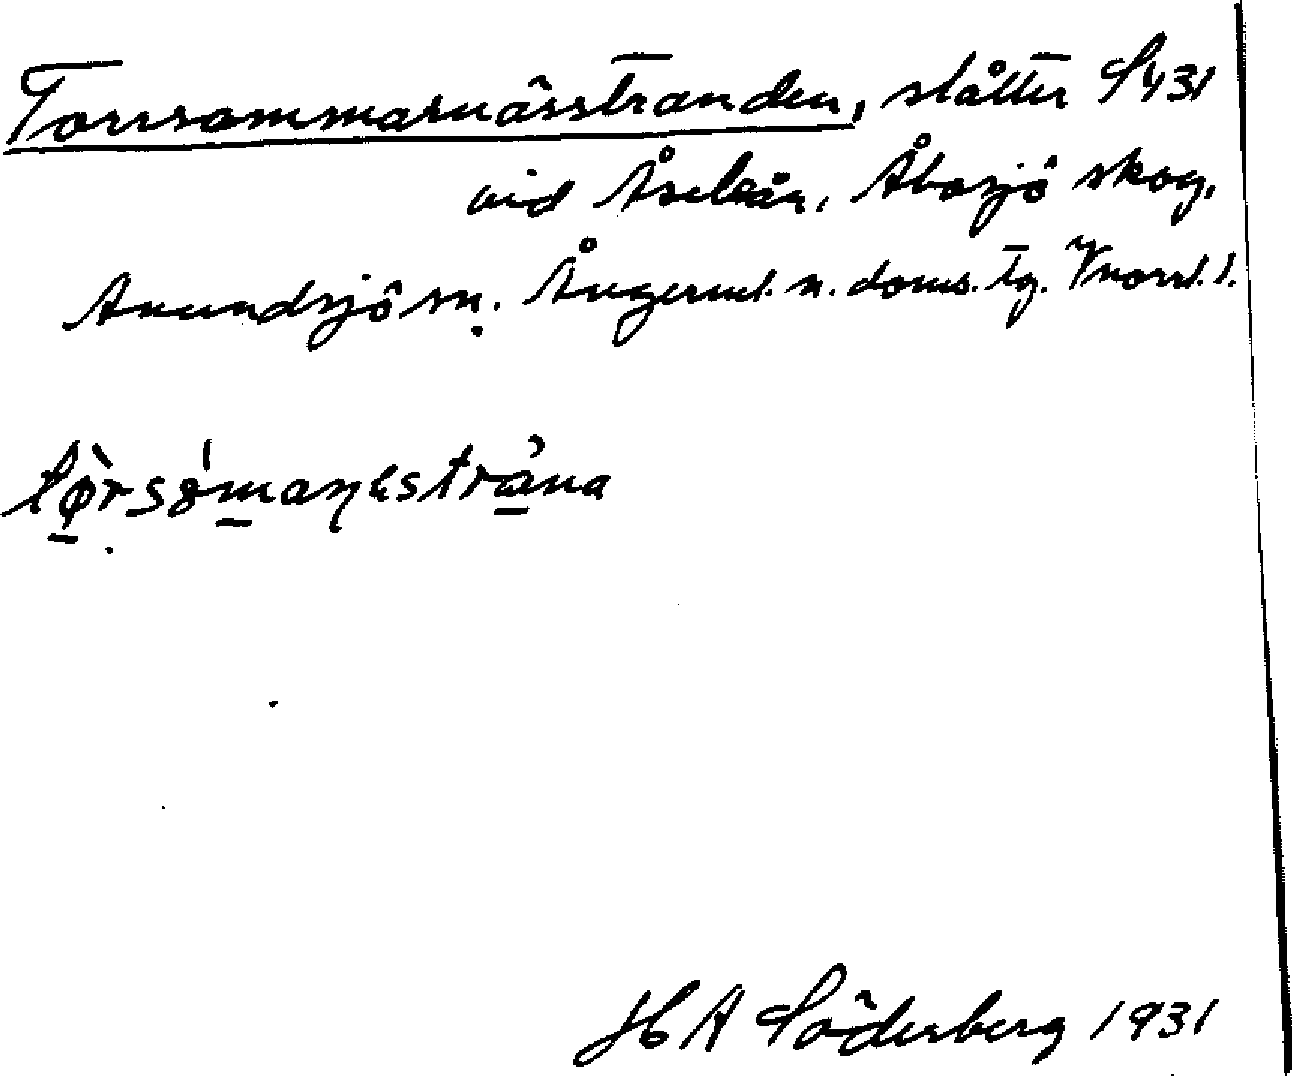 Torrsommarnässtranden, slåtter S431
vid Åseleån, Åbosjö skog,
Anundsjö sn. Ångerml. n. doms. tg. Vnorrl. l.
H A Söderberg 1931